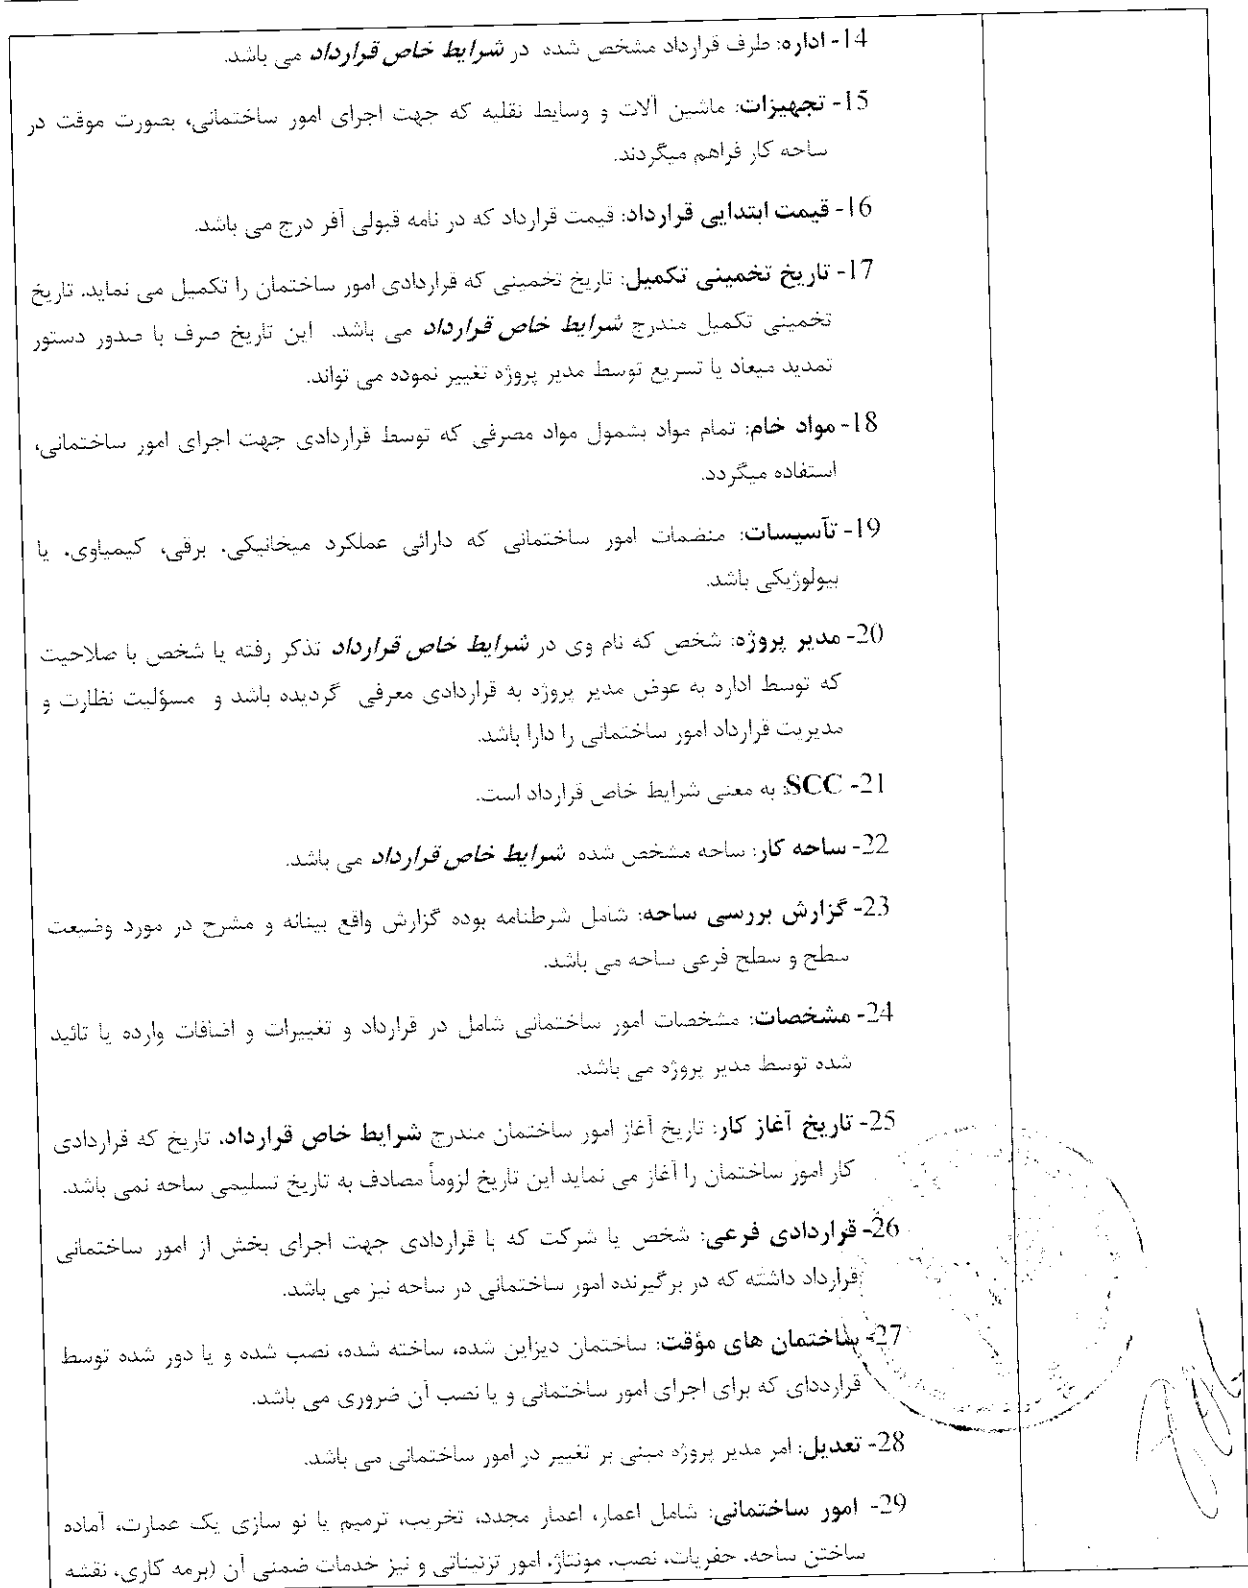 14- اداره: طرف قرارداد مشخص شده در شرایط خاص قرارداد می باشد.
15- تجهیزات: ماشین آلات و وسایط نقلیه که جهت اجرای امور ساختمانی، بصورت موقت در
ساحه کار فراهم میگردند.
16- قیمت ابتدایی قرارداد: قیمت قرارداد که در نامه قبولی آفر درج می باشد.
17- تاریخ تخمینی تکمیل: تاریخ تخمینی که قراردادی امور ساختمان را تکمیل می نماید. تاریخ
تخمینی تکمیل مندرج شرایط خاص قرارداد می باشد. این تاریخ صرف با صدور دستور
تمدید میعاد یا تسریع توسط مدیر پروژه تغییر نموده می تواند.
18- مواد خام: تمام مواد بشمول مواد مصرفی که توسط قراردادی جهت اجرای امور ساختمانی،
استفاده میگردد.
19- تآسیسات: منضمات امور ساختمانی که دارائی عملکرد میخانیکی، برقی، کیمیاوی، یا
بیولوژیکی باشد.
20- مدیر پروژه: شخص که نام وی در شرایط خاص قرارداد تذکر رفته یا شخص با صلاحیت
که توسط اداره به عوض مدیر پروژه به قراردادی معرفی گردیده باشد و مسؤلیت نظارت و
مدیریت قرارداد امور ساختمانی را دارا باشد.
21- SCC: به معنی شرایط خاص قرارداد است.
22- ساحه کار: ساحه مشخص شده شرایط خاص قرارداد می باشد.
23- گزارش بررسی ساحه: شامل شرطنامه بوده گزارش واقع بینانه و مشرح در مورد وضیعت
سطح و سطح فرعی ساحه می باشد.
24- مشخصات: مشخصات امور ساختمانی شامل در قرارداد و تغییرات و اضافات وارده یا تائید
شده توسط مدیر پروژه می باشد.
25- تاریخ آغاز کار: تاریخ آغاز امور ساختمان مندرج شرایط خاص قرارداد. تاریخ که قراردادی
کار امور ساختمان را آغاز می نماید این تاریخ لزوماً مصادف به تاریخ تسلیمی ساحه نمی باشد.
26- قراردادی فرعی: شخص یا شرکت که با قراردادی جهت اجرای بخش از امور ساختمانی
قرارداد داشته که در برگیرنده امور ساختمانی در ساحه نیز می باشد.
27- ساختمان های مؤقت: ساختمان دیزاین شده، ساخته شده، نصب شده و یا دور شده توسط
قرارددای که برای اجرای امور ساختمانی و یا نصب آن ضروری می باشد.
28- تعدیل: امر مدیر پروژه مبنی بر تغییر در امور ساختمانی می باشد.
29- امور ساختمانی: شامل اعمار، اعمار مجدد، تخریب، ترمیم یا نو سازی یک عمارت، آماده
ساختن ساحه، حفریات، نصب، مونتاژ، امور تزئیناتی و نیز خدمات ضمنی آن (برمه کاری، نقشه